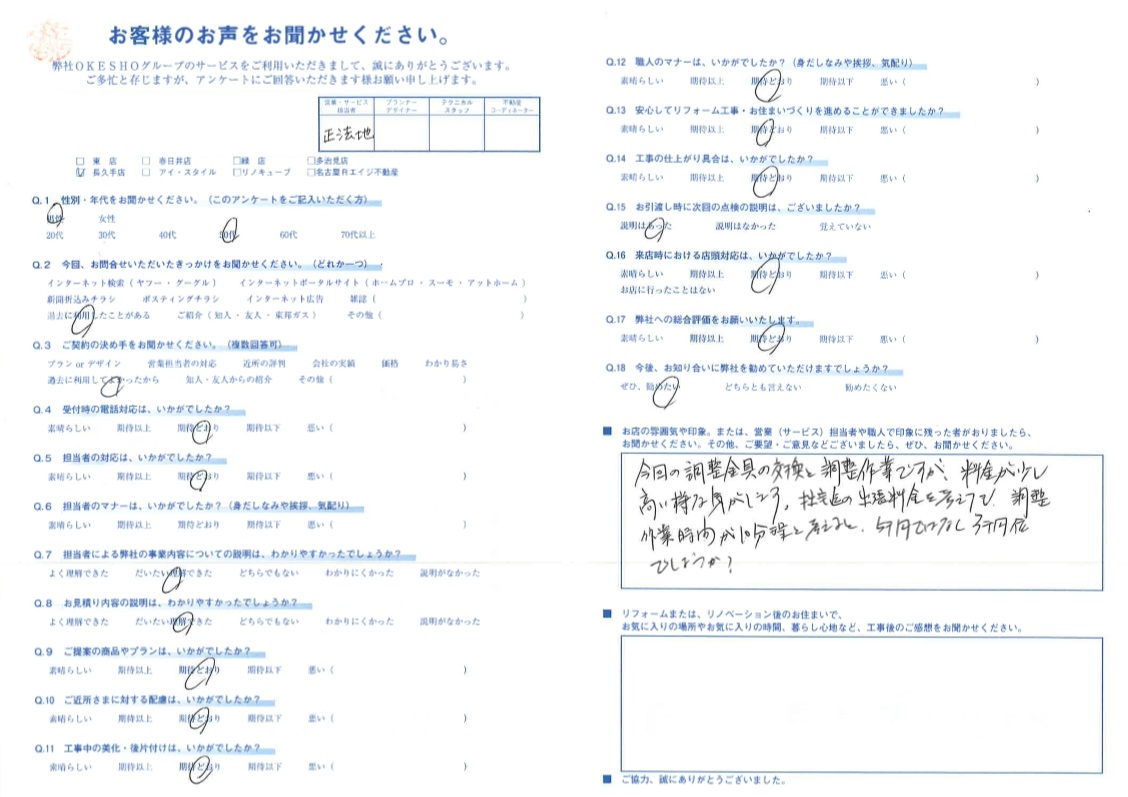 お客様のお声をお聞かせください。
弊社OKESHOグループのサービスをご利用いただきまして、誠にありがとうございます。
ご多忙と存じますが、アンケートにご回答いただきます様お願い申し上げます。
営業・サービス担当者 プランナーデザイナー テクニカルスタッフ 不動産コーディネーター
正法地
□ 東 店 □ 春日井店 □緑 店 □多治見店
☑ 長久手店 □ アイ・スタイル □リノキューブ □名古屋Rエイジ不動産
Q.1 性別・年代をお聞かせください。(このアンケートをご記入いただく方)
男性 女性
20代 30代 40代 50代 60代 70代以上
Q.2 今回、お問合せいただいたきっかけをお聞かせください。(どれか一つ)
インターネット検索(ヤフー・グーグル) インターネットポータルサイト(ホームプロ・スーモ・アットホーム)
新聞折込みチラシ ポスティングチラシ インターネット広告 雑誌( )
過去に利用したことがある ご紹介(知人・友人・東邦ガス) その他( )
Q.3 ご契約の決め手をお聞かせください。(複数回答可)
プラン or デザイン 営業担当者の対応 近所の評判 会社の実績 価格 わかり易さ
過去に利用してよかったから 知人・友人からの紹介 その他( )
Q.4 受付時の電話対応は、いかがでしたか?
素晴らしい 期待以上 期待どおり 期待以下 悪い( )
Q.5 担当者の対応は、いかがでしたか?
素晴らしい 期待以上 期待どおり 期待以下 悪い( )
Q.6 担当者のマナーは、いかがでしたか?(身だしなみや挨拶、気配り)
素晴らしい 期待以上 期待どおり 期待以下 悪い( )
Q.7 担当者による弊社の事業内容についての説明は、わかりやすかったでしょうか?
よく理解できた だいたい理解できた どちらでもない わかりにくかった 説明がなかった
Q.8 お見積り内容の説明は、わかりやすかったでしょうか?
よく理解できた だいたい理解できた どちらでもない わかりにくかった 説明がなかった
Q.9 ご提案の商品やプランは、いかがでしたか?
素晴らしい 期待以上 期待どおり 期待以下 悪い( )
Q.10 ご近所さまに対する配慮は、いかがでしたか?
素晴らしい 期待以上 期待どおり 期待以下 悪い( )
Q.11 工事中の美化・後片付けは、いかがでしたか?
素晴らしい 期待以上 期待どおり 期待以下 悪い( )
Q.12 職人のマナーは、いかがでしたか?(身だしなみや挨拶、気配り)
素晴らしい 期待以上 期待どおり 期待以下 悪い( )
Q.13 安心してリフォーム工事・お住まいづくりを進めることができましたか?
素晴らしい 期待以上 期待どおり 期待以下 悪い( )
Q.14 工事の仕上がり具合は、いかがでしたか?
素晴らしい 期待以上 期待どおり 期待以下 悪い( )
Q.15 お引渡し時に次回の点検の説明は、ございましたか?
説明はあった 説明はなかった 覚えていない
Q.16 来店時における店頭対応は、いかがでしたか?
素晴らしい 期待以上 期待どおり 期待以下 悪い( )
お店に行ったことはない
Q.17 弊社への総合評価をお願いいたします。
素晴らしい 期待以上 期待どおり 期待以下 悪い( )
Q.18 今後、お知り合いに弊社を勧めていただけますでしょうか?
ぜひ、勧めたい どちらとも言えない 勧めたくない
■ お店の雰囲気や印象。または、営業(サービス)担当者や職人で印象に残った者がおりましたら、
お聞かせください。その他、ご要望・ご意見などございましたら、ぜひ、お聞かせください。
今回の調整金具の交換と調整作業ですが、料金が少し
高い様な気がします。技術者の出張料金を考えて、調整
作業時間が10分程と考えると、5千円ではなく3千円位
でしょうか?
■ リフォームまたは、リノベーション後のお住まいで、
お気に入りの場所やお気に入りの時間、暮らし心地など、工事後のご感想をお聞かせください。
■ ご協力、誠にありがとうございました。